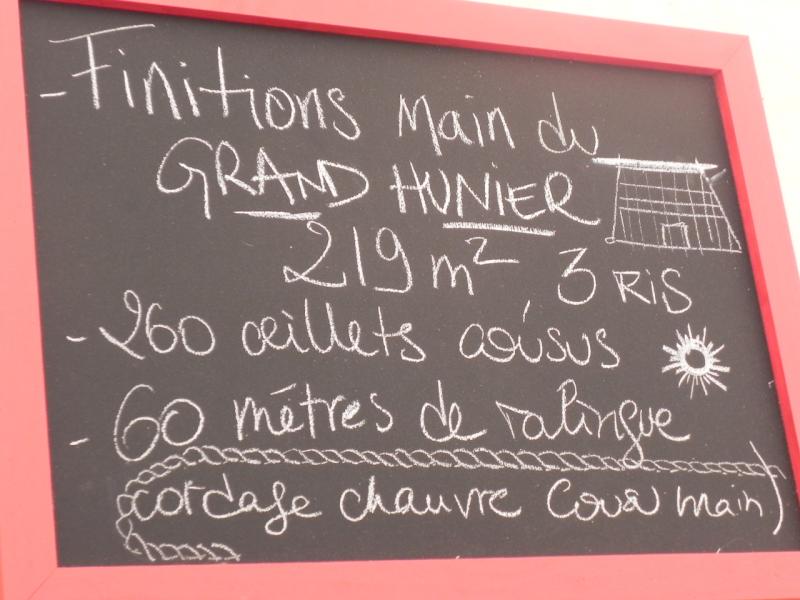 - Finitions Main du
GRAND HUNIER
219 m² 3 RIS
- 260 œillets cousus
- 60 mètres de ralingue
(cordage chauvre cousu main)